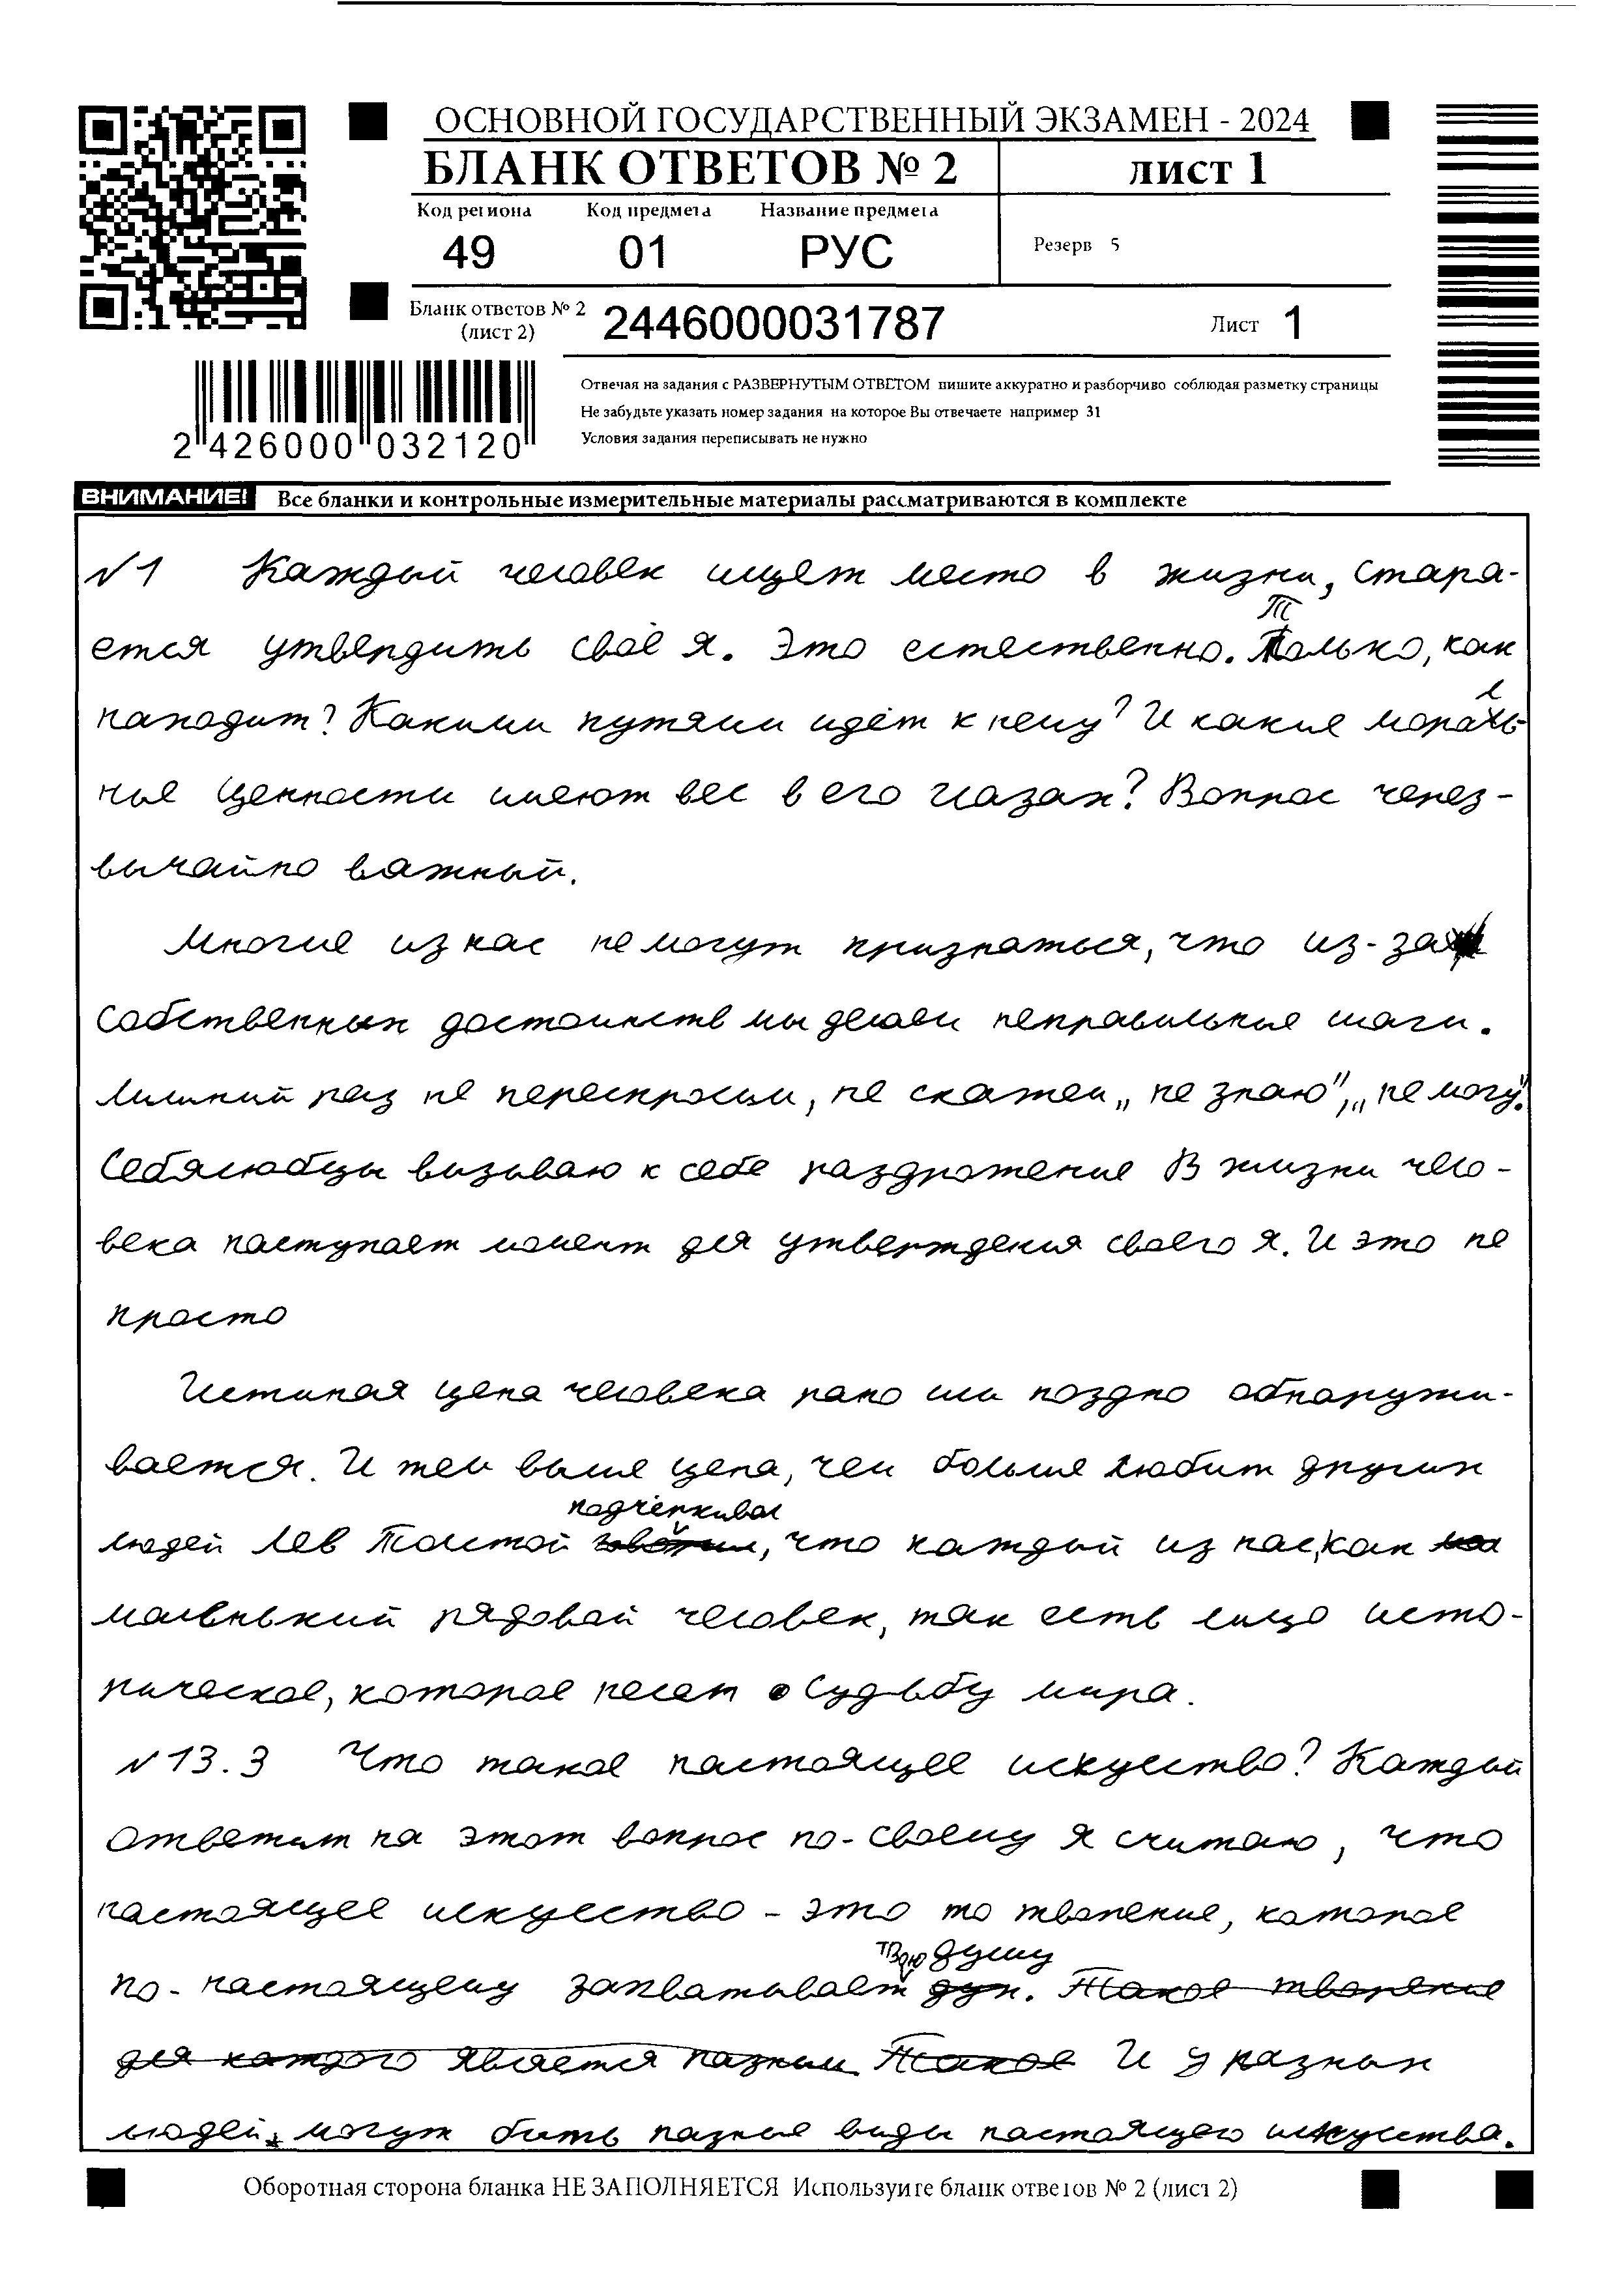 ОСНОВНОЙ ГОСУДАРСТВЕННЫЙ ЭКЗАМЕН - 2024
БЛАНК ОТВЕТОВ № 2
лист 1
Код региона
Код предмета
Название предмета
49
01
РУС
Резерв 5
Бланк ответов № 2
(лист 2)
2446000031787
Лист 1
Отвечая на задания с РАЗВЕРНУТЫМ ОТВЕТОМ пишите аккуратно и разборчиво соблюдая разметку страницы
Не забудьте указать номер задания на которое Вы отвечаете например 31
Условия задания переписывать не нужно
2 426000 032120
ВНИМАНИЕ! Все бланки и контрольные измерительные материалы рассматриваются в комплекте
№1 Каждый человек ищет место в жизни, стара-
ется утвердить своё я. Это естественно. Только, как
находит? Какими путями идёт к нему? И какие мораль
ные ценности имеют вес в его глазах? Вопрос через-
вычайно важный.
Многие из нас не могут признаться, что из-за
собственных достоинств мы делаем неправильные шаги.
Лишний раз не переспросим, не скажем „не знаю", „не могу".
Себялюбцы вызываю к себе раздрожение В жизни чело-
века наступает момент для утверждения своего я. И это не
просто
Истиная цена человека рано или поздно обнаружи-
вается. И тем выше цена, чем больше любит других
людей Лев Толстой подчёркивал, что каждый из нас, как
малвнький рядовой человек, так есть лицо исто-
рическое, которое несет судьбу мира.
№13.3 Что такое настоящее искуество? Каждый
ответит на этот вопрос по-своему Я считаю, что
настоящее искуество - это то творение, которое
по-настоящему захватывает твою душу. Такое творение
для каждого явлется разным Такое И у разных
людей могут быть разные виды настоящего искуества.
Оборотная сторона бланка НЕ ЗАПОЛНЯЕТСЯ Используйте бланк ответов № 2 (лист 2)